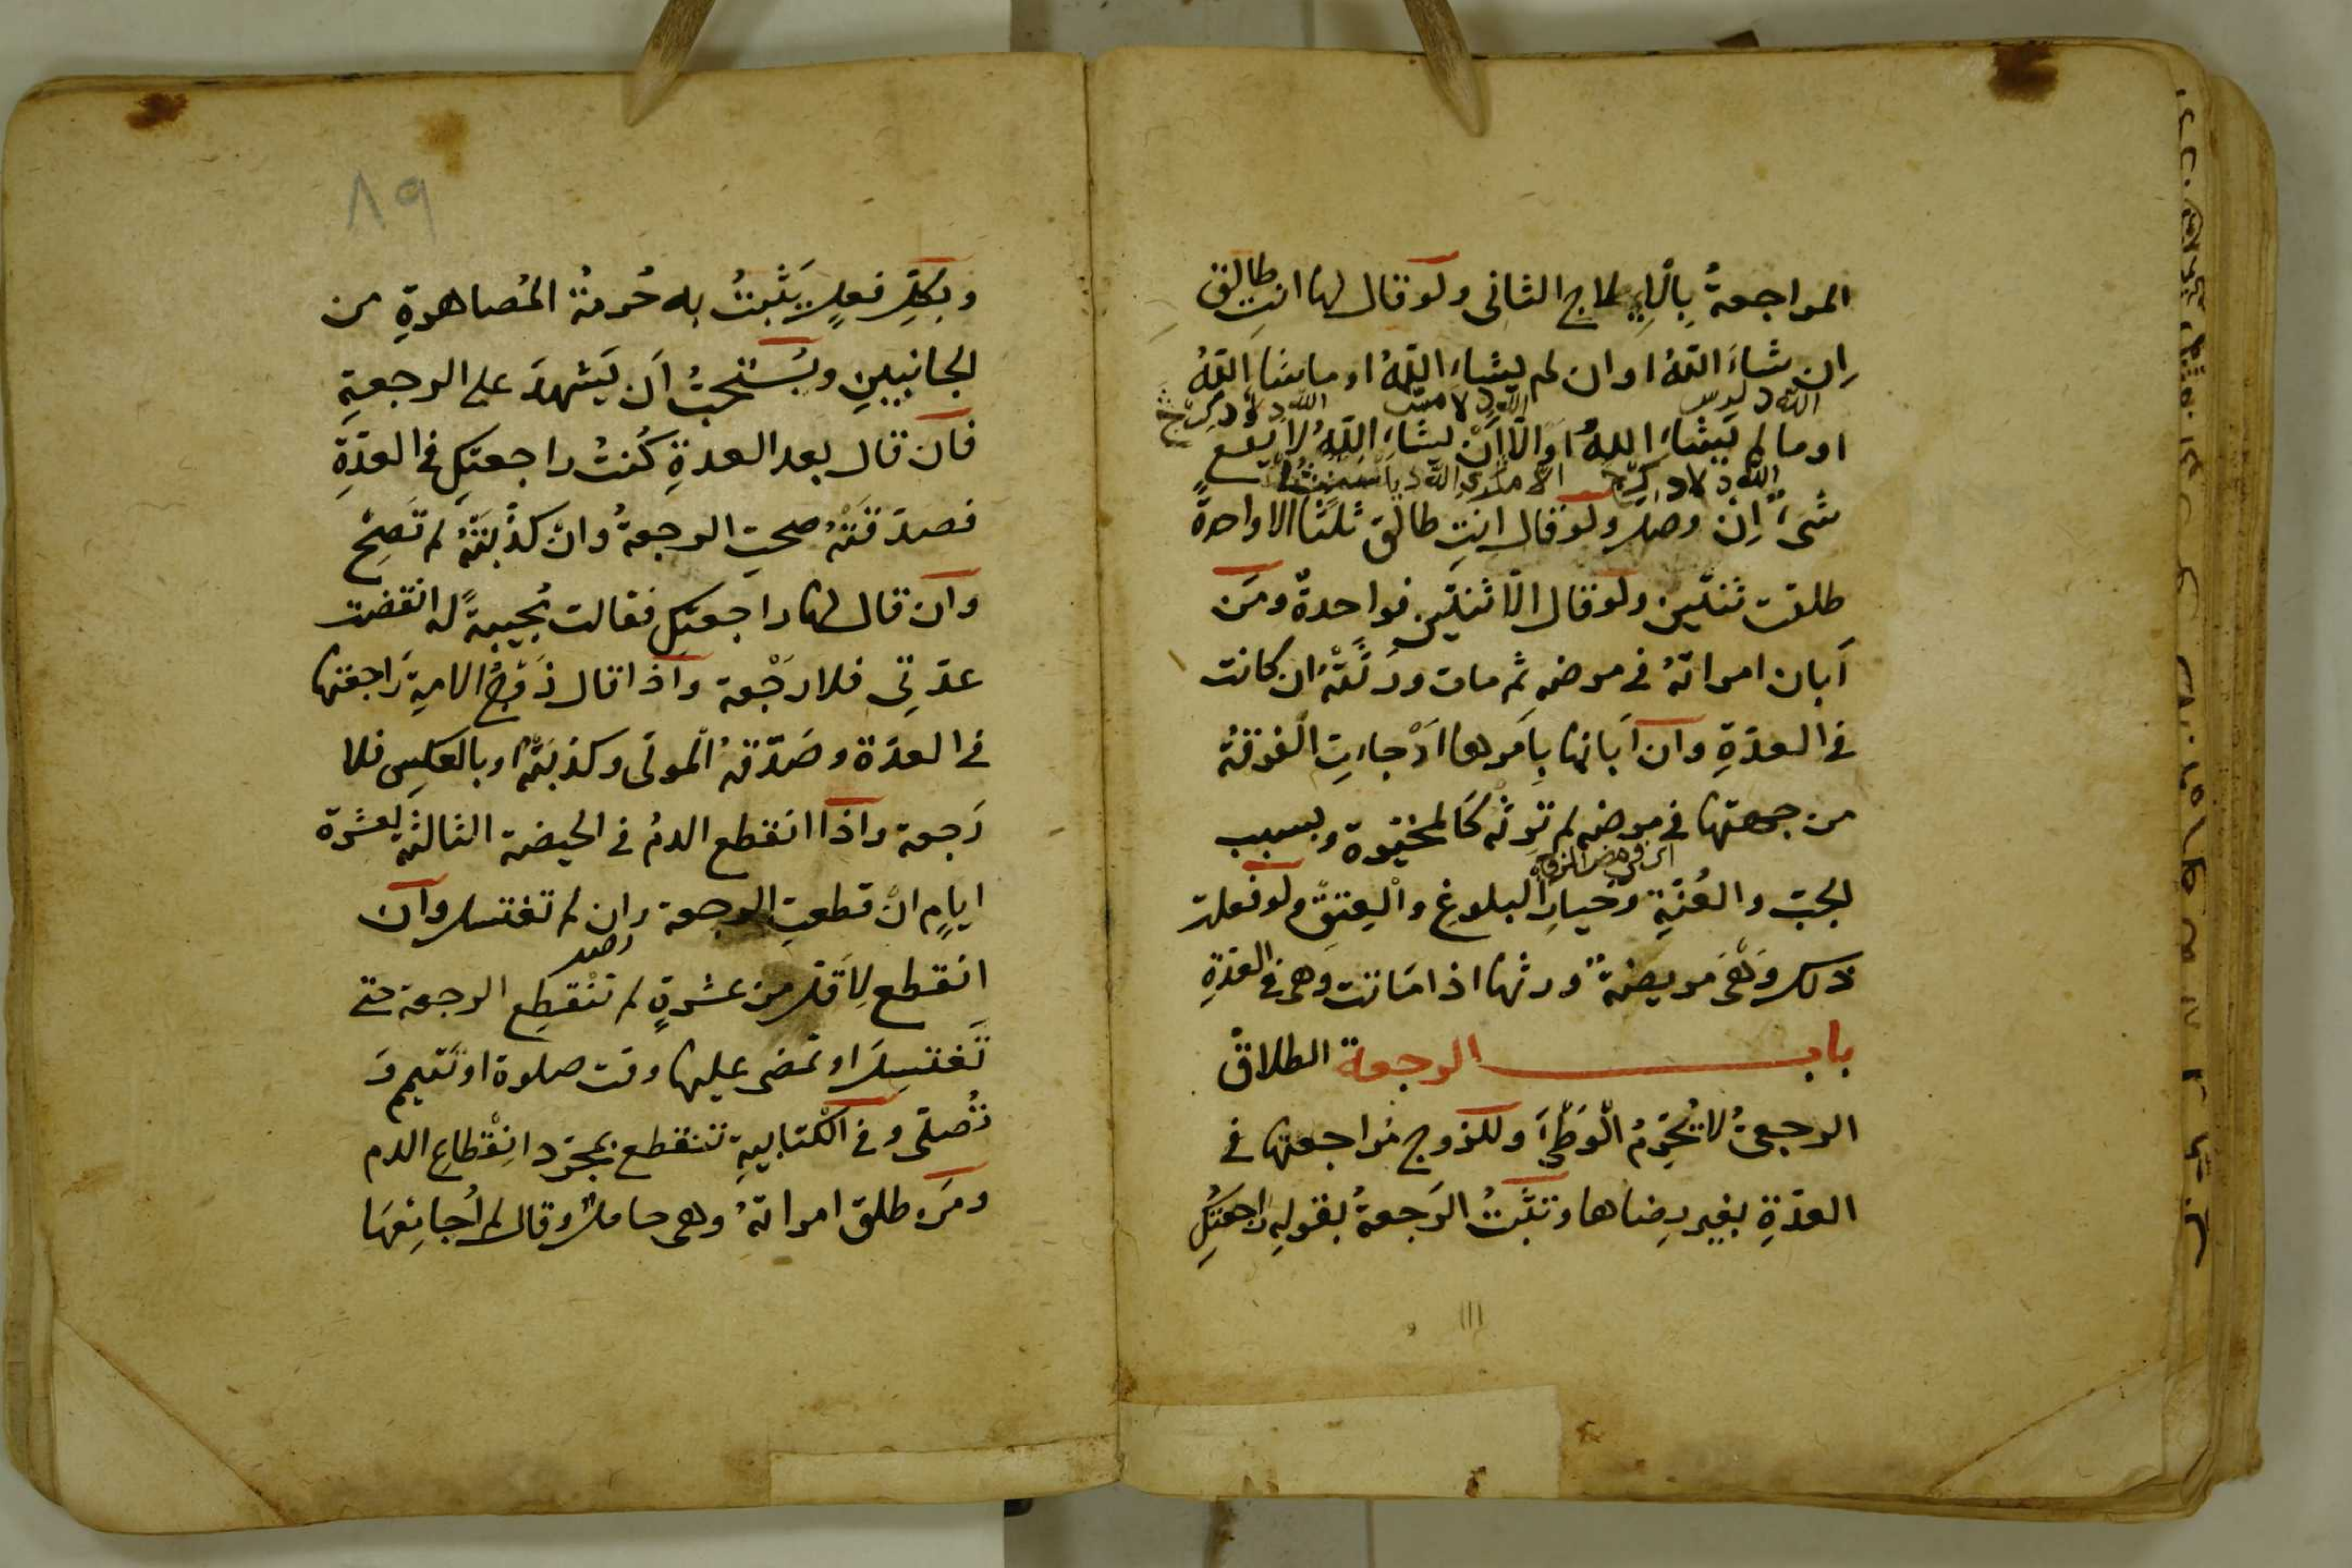 المواجعةُ بِالايلاجِ الثانى ولو قال لها انتِ طالق
اِن شاءَ اللّهُ او ان لم يشاءِ اللّهُ او ما شاء اللّهُ
او ما لم يَشاءِ اللهُ او الّا اَنْ يشاءَ اللّهُ لا يقع
شىءٌ اِنْ وصل ولو قال انتِ طالق ثلثًا الا واحدةً
طلقت ثنتين ولو قال الّا ثنتين فواحدةٌ ومَن
اَبان امراتهُ فى مرضه ثم مات ورثَتْهُ ان كانت
فى العدّةِ وان اَبانها بِاَمرها اَوْ جاءتِ الفرقةُ
من جهتها فى مرضه لم ترثه كالمخيرة وبسبب
اى فى مرض الزوج
الجبّ والعُنّةِ وخيارِ البلوغِ والعِتقِ ولو فعلت
ذلك وَهْىَ مريضةٌ ورثها اذا مَاتت وهى فى العدّةِ
باب الرجعة الطلاق
الرجعىُّ لا يُحَرِّمُ الوَطْىَٔ وللزوج مُراجعتها فى
العدّةِ بغير رِضاها وتثبُتُ الرَجعةُ بقولِهِ راجعتكِ
٨٩
وبكلِّ فعلٍ يَثْبتُ به حُرمةُ المُصاهرةِ من
الجانبينِ ويُستحبُّ اَن يَشهدَ على الرجعةِ
فان قال بعد العدةِ كُنتُ راجعتكِ فى العدّةِ
فصدّقتهُ صحتِ الرجعةُ وانْ كذّبتهُ لم تَصِحّ
وان قال لها راجعتكِ فقالت مُجيبةً له انقضت
عدّتِى فلا رَجْعة واذا قال زَوْجُ الامةِ رَاجعتها
فى العدّة وصَدّقهُ المولى وكذبَتْهُ او بالعكسِ فلا
رَجعة واذا انقطع الدمُ فى الحيضة الثالثة لعشرة
ايامٍ انْقطعتِ الرجعة وان لم تغتسل وان
انقطع لِاَقل من عشرةٍ لم تنْقطِع الرجعة حتى
تَغتسلَ او تمضى عليها وقت صلوة او تَتَيمم وَ
تُصلّى وفى الكتابيةِ تنقطع بمجرّد انِقْطاعِ الدم
ومَن طلق امراتهُ وهى حاملٌ وقال لم اُجامِعْهَا